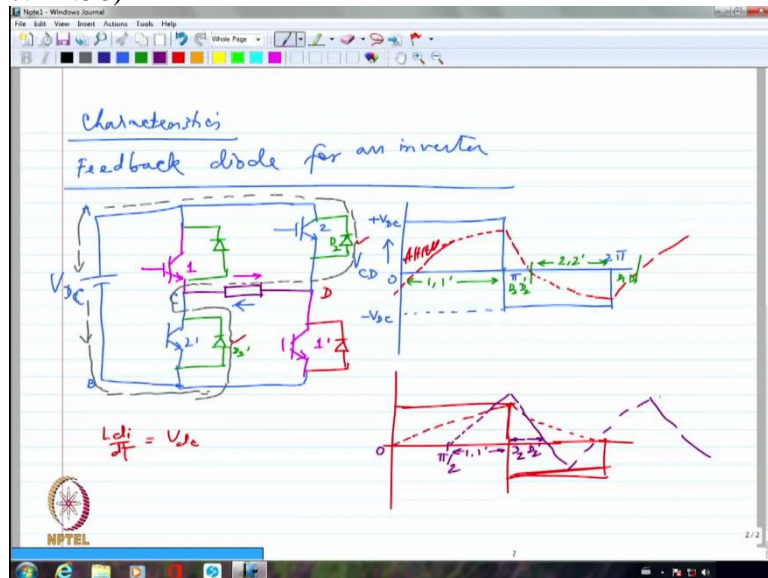 Note1 - Windows Journal
File Edit View Insert Actions Tools Help
Whole Page
B I
Characteristics
Feedback diode for an inverter
VDC
1
2
D2
C
D
2'
D2'
1'
B
VCD
+VDC
0
-VDC
1,1'
π
D2 D2'
2,2'
2π
L di/dt = Vdc
0
π/2
1,1'
D2 D2'
NPTEL
2/2
2